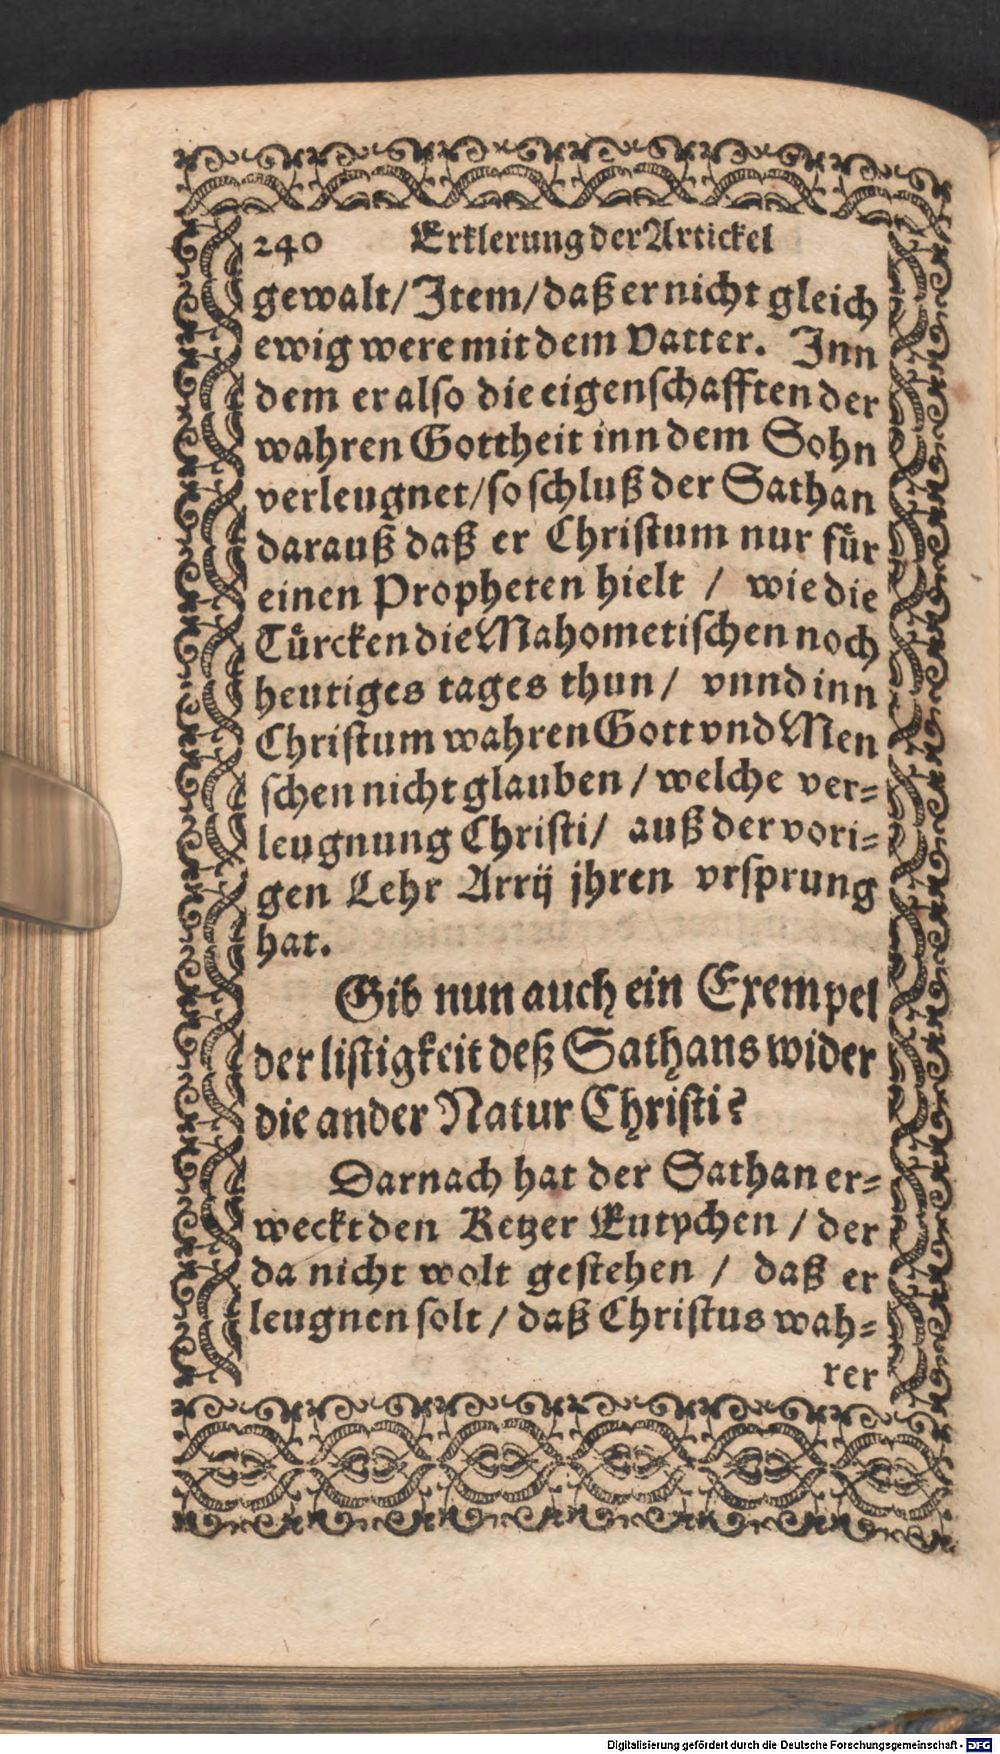 240 Erklerung der Artickel
gewalt/ Item/ daß er nicht gleich
ewig were mit dem Vatter. Inn
dem er also die eigenschafften der
wahren Gottheit inn dem Sohn
verleugnet/ so schluß der Sathan
darauß daß er Christum nur fuͤr
einen Propheten hielt / wie die
Tuͤrcken die Mahometischen noch
heutiges tages thun / vnnd inn
Christum wahren Gott vnd Men
schen nicht glauben / welche ver-
leugnung Christi/ auß der vori-
gen Lehr Arrij jhren vrsprung
hat.
Gib nun auch ein Exempel
der listigkeit deß Sathans wider
die ander Natur Christi?
Darnach hat der Sathan er-
weckt den Ketzer Eutychen / der
da nicht wolt gestehen / daß er
leugnen solt / daß Christus wah-
rer
Digitalisierung gefördert durch die Deutsche Forschungsgemeinschaft - DFG